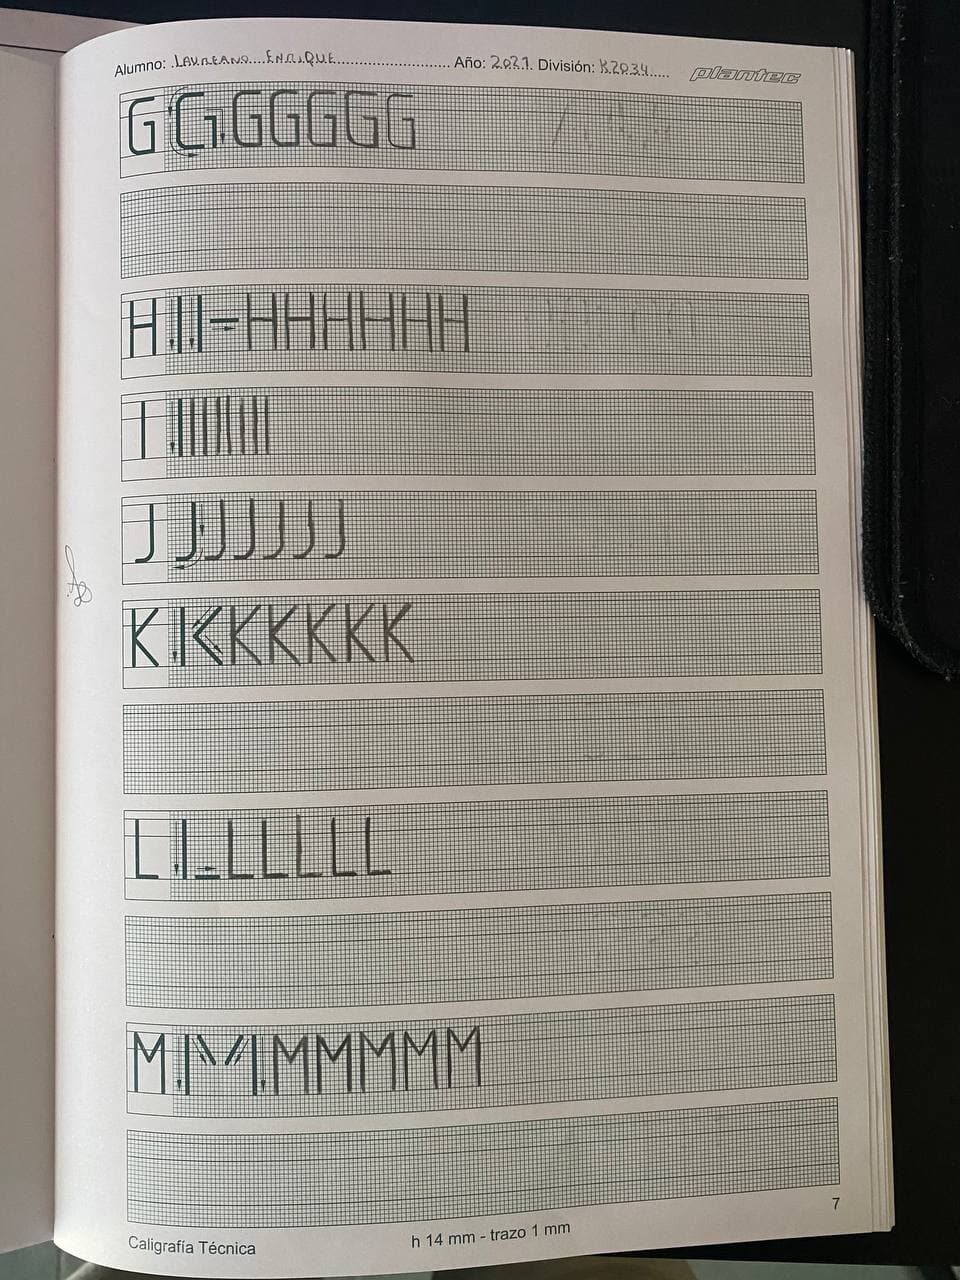 Alumno: LAUREANO ENRIQUE Año: 2021 División: K2034 plantec
G G G G G G G
H I I - H H H H H H
I I I I I I I I
J J J J J J J
K I K K K K K K
L I _ L L L L L
M I \ / I M M M M M
7
Caligrafía Técnica h 14 mm - trazo 1 mm